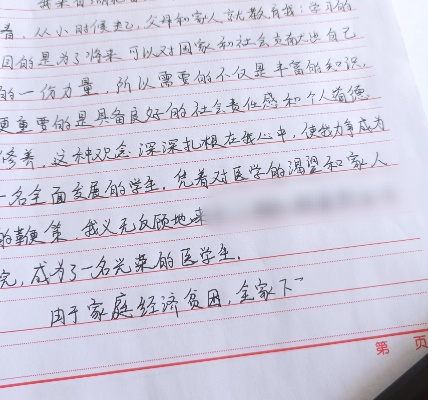 我来自
者，从小时候起，父母和家人就教育我：学习的
目的是为了将来可以对国家和社会贡献出自己
的一份力量，所以需要的不仅是丰富的知识，
更重要的是具备良好的社会责任感和个人道德
修养，这种观念深深扎根在我心中，使我力争成为
一名全面发展的学生。凭着对医学的渴望和家人
的鞭策，我义无反顾地来
完，成为了一名光荣的医学生。
由于家庭经济贫困，全家下
第 页